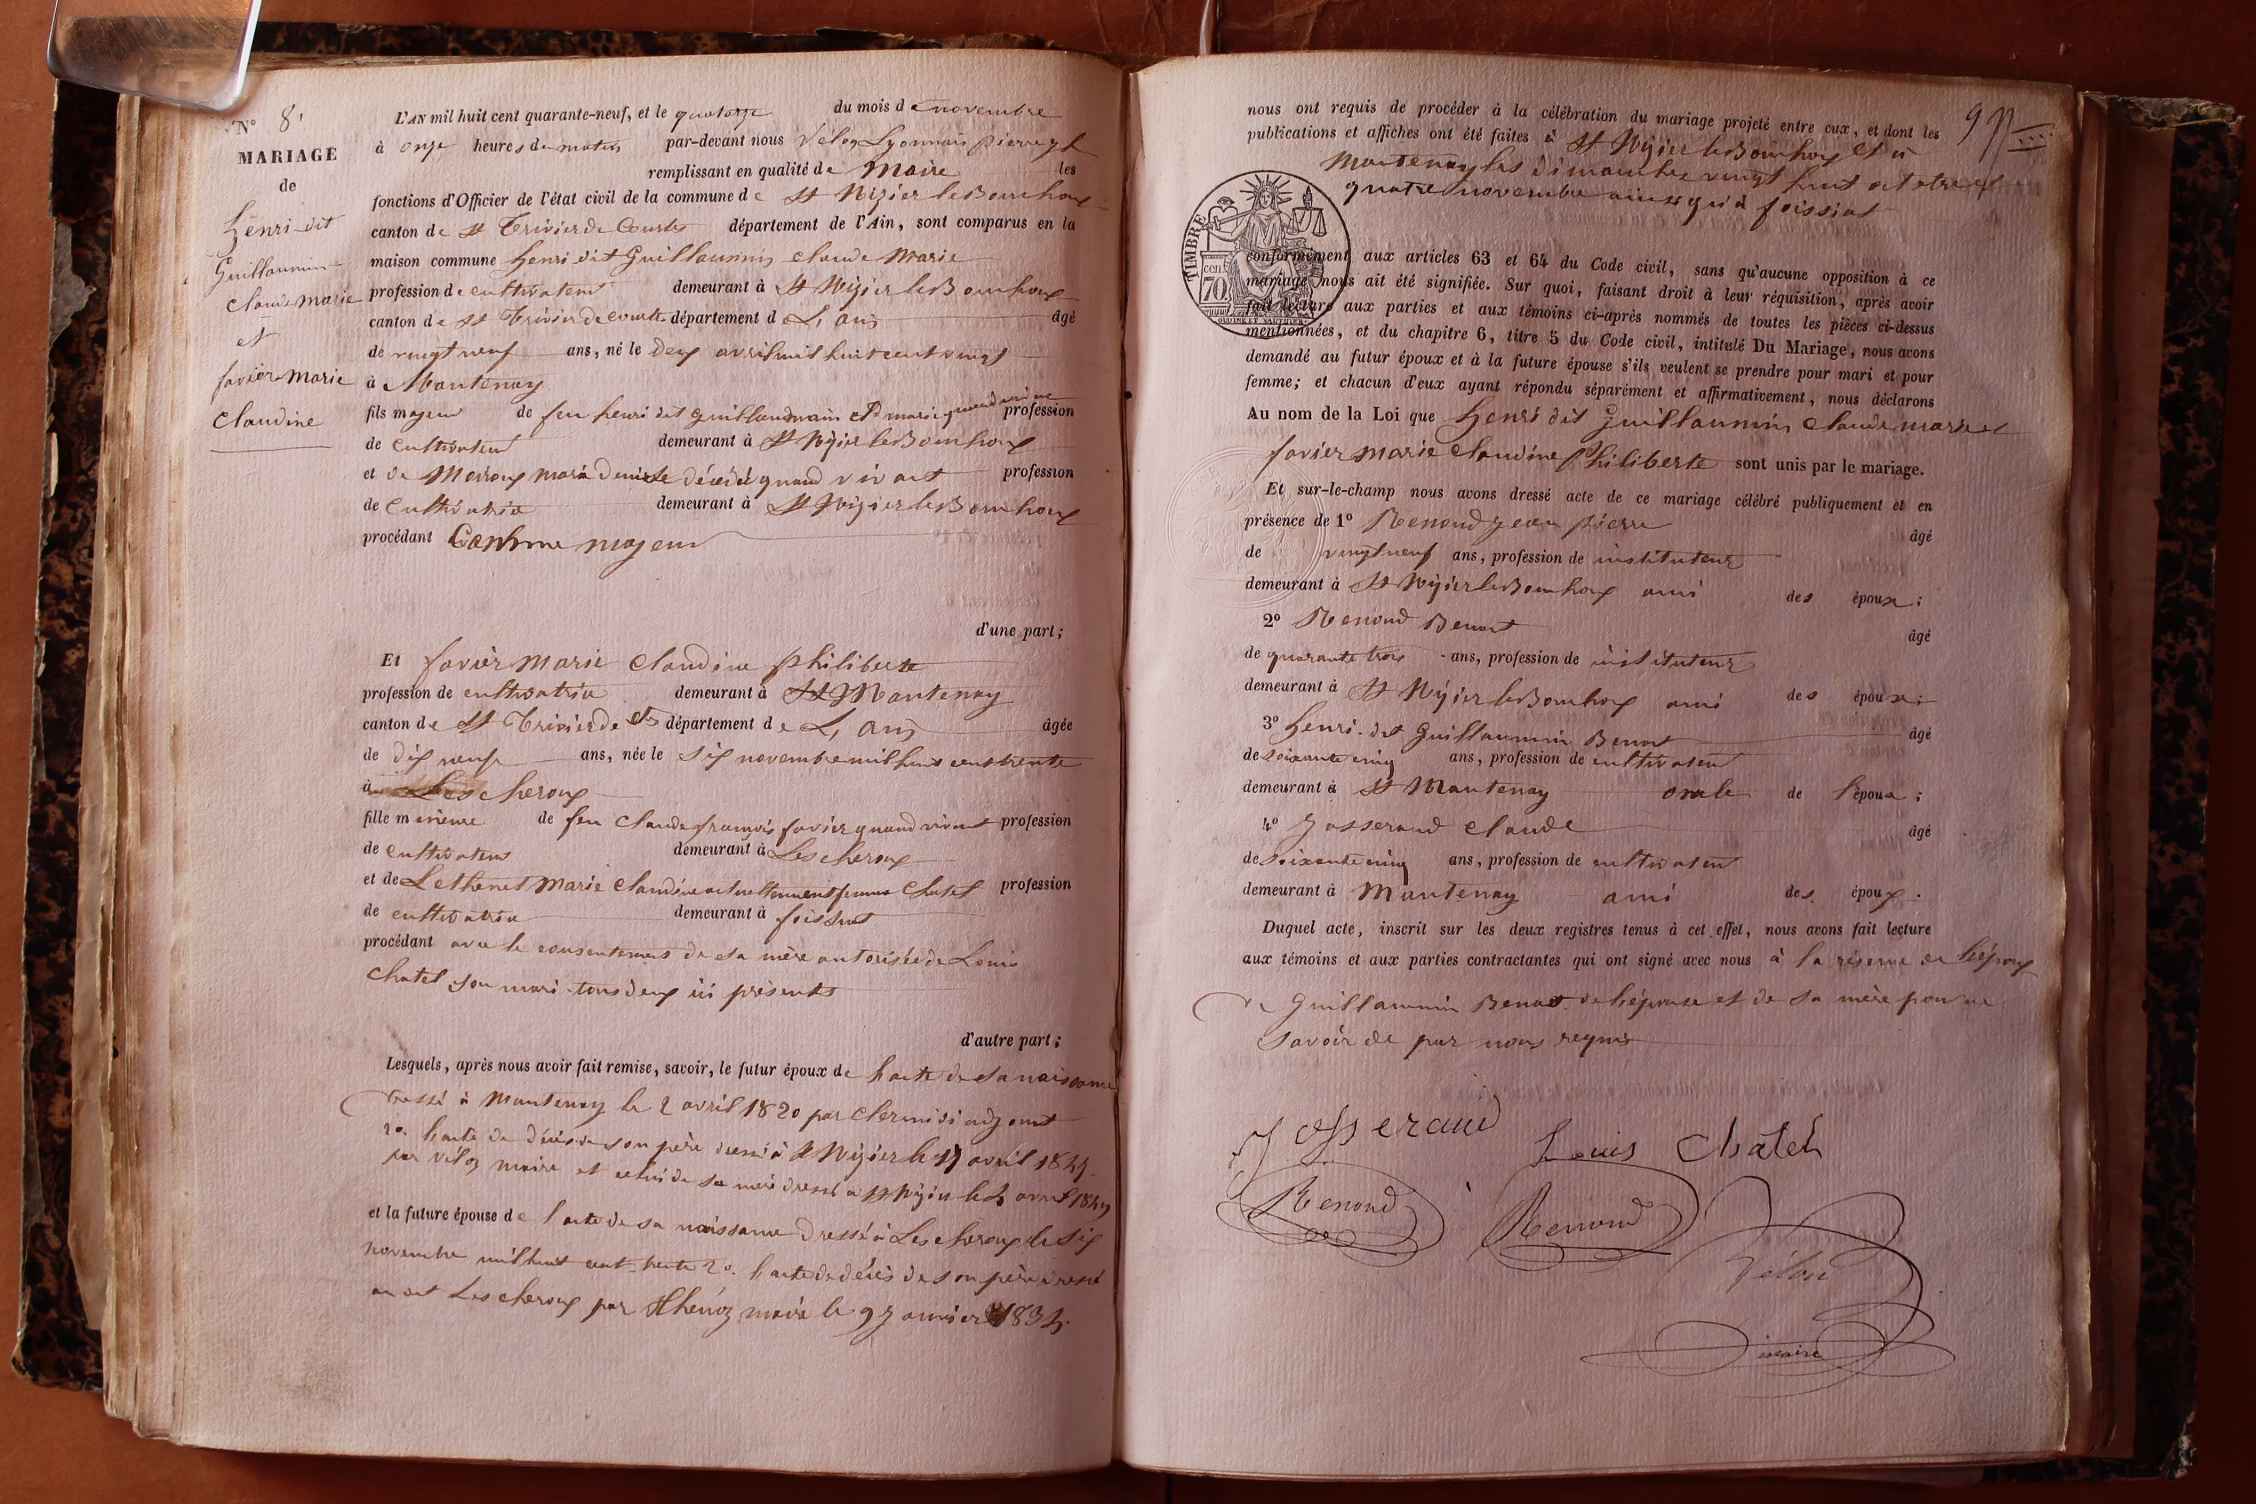 N° 8
MARIAGE
de
henri dit
Guillaumin
claude marie
et
favier marie
claudine
L'AN mil huit cent quarante-neuf, et le quatorze du mois de novembre
à onze heures du matin par-devant nous Velon Lyonnais pierre
remplissant en qualité de Maire les
fonctions d'Officier de l'état civil de la commune de St Nizier le Bouchoux
canton de St Trivier de Courtes département de l'Ain, sont comparus en la
maison commune henri dit Guillaumin claude Marie
profession de cultivateur demeurant à St Nizier le Bouchoux
canton de St Trivier de courtes département de L'ain âgé
de vingt neuf ans, né le deux avril mil huit cent vingt
à Mantenay
fils majeur de feu henri dit guillaumain marie quand vivant profession
de cultivateur demeurant à St Nizier le Bouchoux
et de marie denise décédée quand vivait profession
de cultivatrice demeurant à St Nizier le Bouchoux
procédant Comme majeur
d'une part;
Et favier Marie claudine philiberte
profession de cultivatrice demeurant à St Mantenay
canton de St Trivier de département de L'ain âgée
de dix neuf ans, née le six novembre mil huit cent trente
à Lescheroux
fille mineure de feu claude françois favier quand vivait profession
de cultivateur demeurant à Lescheroux
et de Lethenet Marie claudine actuellement femme Chatel profession
de cultivatrice demeurant à foissiat
procédant avec le consentement de sa mère autorisée de Louis
Chatel son mari tous deux ici présents
d'autre part;
Lesquels, après nous avoir fait remise, savoir, le futur époux de l'acte de sa naissance
dressé à Mantenay le 2 avril 1820 par adjoint
2° l'acte de décès de son père dressé à St Nizier le 17 avril
par Velon maire et celui de sa mère dressé à St Nizier le avril
et la future épouse de l'acte de sa naissance dressé à Lescheroux le six
novembre mil huit cent trente 2° l'acte de décès de son père dressé
Lescheroux par maire le 9 janvier 1834.
9
nous ont requis de procéder à la célébration du mariage projeté entre eux, et dont les
publications et affiches ont été faites à St Nizier le Bouchoux et à
Mantenay les dimanches vingt huit octobre et
quatre novembre ainsi qu'à foissiat
TIMBRE
70 cen
conformément aux articles 63 et 64 du Code civil, sans qu'aucune opposition à ce
mariage nous ait été signifiée. Sur quoi, faisant droit à leur réquisition, après avoir
fait lecture aux parties et aux témoins ci-après nommés de toutes les pièces ci-dessus
mentionnées, et du chapitre 6, titre 5 du Code civil, intitulé Du Mariage, nous avons
demandé au futur époux et à la future épouse s'ils veulent se prendre pour mari et pour
femme; et chacun d'eux ayant répondu séparément et affirmativement, nous déclarons
Au nom de la Loi que henri dit Guillaumin claude marie et
favier marie claudine Philiberte sont unis par le mariage.
Et sur-le-champ nous avons dressé acte de ce mariage célébré publiquement et en
présence de 1° Renoud jean pierre âgé
de vingt neuf ans, profession de instituteur
demeurant à St Nizier le Bouchoux ami des époux;
2° Renoud Benoit âgé
de quarante trois ans, profession de instituteur
demeurant à St Nizier le Bouchoux ami des époux;
3° henri dit Guillaumin Benoit âgé
de soixante cinq ans, profession de cultivateur
demeurant à St Mantenay oncle de l'époux;
4° Josserand claude âgé
de soixante cinq ans, profession de cultivateur
demeurant à Mantenay ami des époux.
Duquel acte, inscrit sur les deux registres tenus à cet effet, nous avons fait lecture
aux témoins et aux parties contractantes qui ont signé avec nous à la réserve de l'époux
de Guillaumin Benoit de l'épouse et de sa mère pour ne
savoir de par nous requis
Josserand
Louis Chatel
Renoud
Renoud
Velon
maire